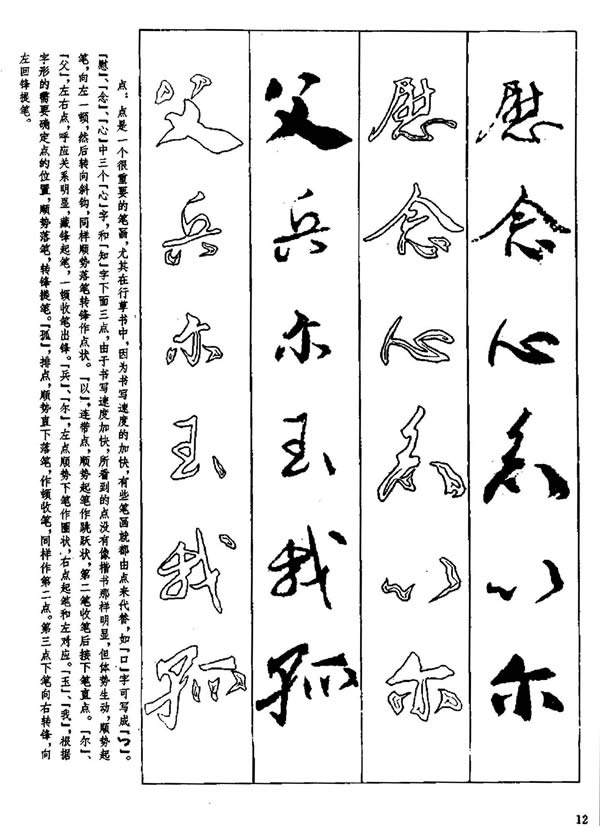 慰念心知以尔
慰念心知以尔
父兵尔玉我孤
父兵尔玉我孤
点：点是一个很重要的笔画，尤其在行草书中，因为书写速度的加快，有些笔画就都由点来代替，如「口」字可写成「」。
「慰」、「念」、「心」中三个「心」字，和「知」字下面三点，由于书写速度加快，所看到的点没有像楷书那样明显，但体势生动，顺势起
笔，向左一顿，然后转向斜钩，同样顺势落笔转锋作点状。「以」，连带点，顺势起笔作跳跃状，第二笔收笔后接下笔直点。「尔」、
「父」，左右点，呼应关系明显，藏锋起笔，一顿收笔出锋。「兵」、「尔」，左点顺势下笔作圈状，右点起笔和左对应。「玉」、「我」，根据
字形的需要确定点的位置，顺势落笔，转锋提笔。「孤」，排点，顺势直下落笔，作顿收笔，同样作第二点。第三点下笔向右转锋，向
左回锋提笔。
12